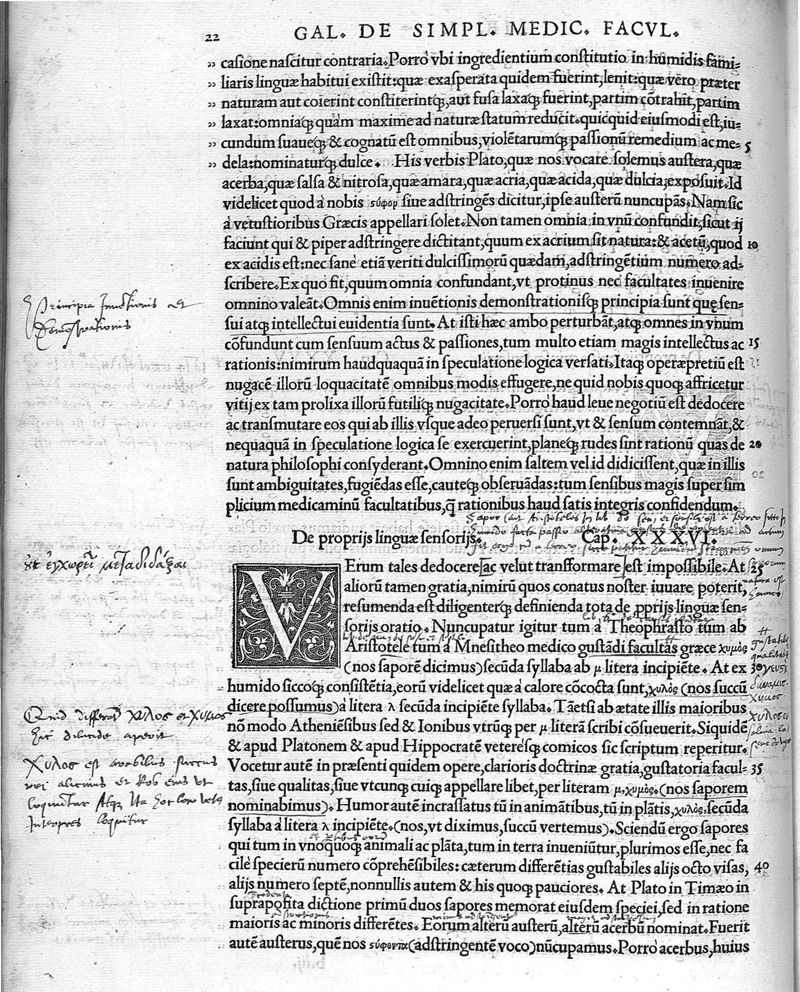 22
GAL. DE SIMPL. MEDIC. FACVL.
„ casione nascitur contraria. Porrò vbi ingredientium constitutio in humidis fami-
„ liaris linguæ habitui existit: quæ exasperata quidem fuerint, lenit: quæ vero præter
„ naturam aut coierint constiterintq́;, aut fusa laxaq́; fuerint, partim cõtrahit, partim
„ laxat: omniaq́; quàm maxime ad naturæ statum reducit. quicquid eiusmodi est, iu-
„ cundum suaueq́; & cognatũ est omnibus, violẽtarumq́; passionũ remedium ac me- 5
„ dela: nominaturq́; dulce. His verbis Plato, quæ nos vocare solemus austera, quæ
acerba, quæ salsa & nitrosa, quæ amara, quæ acria, quæ acida, quæ dulcia, exposuit. Id
videlicet quod à nobis ςύφορ siue adstringẽs dicitur, ipse austerũ nuncupãs. Nam sic
à vetustioribus Græcis appellari solet. Non tamen omnia in vnũ confundit, sicut ij
faciunt qui & piper adstringere dictitant, quum ex acrium sit natura: & acetũ, quod 10
ex acidis est: nec sane etiã veriti dulcissimorũ quædam, adstringẽtium numero ad-
scribere. Ex quo fit, quum omnia confundant, vt protinus nec facultates inuenire
omnino valeãt. Omnis enim inuẽtionis demonstrationisq́; principia sunt quę sen-
sui atq́; intellectui euidentia sunt. At isti hæc ambo perturbãt, atq́; omnes in vnum
cõfundunt cum sensuum actus & passiones, tum multo etiam magis intellectus ac 15
rationis: nimirum haudquaquã in speculatione logica versati. Itaq́; operæpretiũ est
nugacẽ illorũ loquacitatẽ omnibus modis effugere, ne quid nobis quoq́; affricetur
vitij ex tam prolixa illorũ futiliq́; nugacitate. Porrò haud leue negotiũ est dedocere
ac transmutare eos qui ab illis vsque adeo peruersi sunt, vt & sensum contemnãt, &
nequaquã in speculatione logica se exercuerint, planeq́; rudes sint rationũ quas de 20
natura philosophi consyderant. Omnino enim saltem vel id didicissent, quæ in illis
sunt ambiguitates, fugiẽdas esse, cauteq́; obseruãdas: tum sensibus magis super sim
plicium medicaminũ facultatibus, q̃ rationibus haud satis integris confidendum.
Principia Inuẽtionis et
Demõstrationis
De proprijs linguæ sensorijs. Cap. XXXVI.
ὲτ ἐγχωρεῖ μεταδιδάξαι
VErum tales dedocere ac velut transformare est impossibile. At 25
aliorũ tamen gratia, nimirũ quos conatus noster iuuare poterit,
resumenda est diligenterq́; definienda tota de pprijs linguæ sen-
sorijs oratio. Nuncupatur igitur tum à Theophrasto tum ab
Aristotele tum à Mnesitheo medico gustãdi facultas græce χυμὸς
(nos saporẽ dicimus) secũda syllaba ab μ litera incipiẽte. At ex 30
humido siccoq́; consistẽtia, eorũ videlicet quæ à calore cõcocta sunt, χυλὸς (nos succũ
dicere possumus) à litera λ secũda incipiẽte syllaba. Tãetsi ab ætate illis maioribus
nõ modo Atheniẽsibus sed & Ionibus vtrũq; per μ literã scribi cõsueuerit. Siquidẽ
& apud Platonem & apud Hippocratẽ veteresq́; comicos sic scriptum reperitur.
Vocetur autẽ in præsenti quidem opere, clarioris doctrinæ gratia, gustatoria facul- 35
tas, siue qualitas, siue vtcunq́; cuiq́; appellare libet, per literam μ, χυμὸς: (nos saporem
nominabimus). Humor autẽ incrassatus tũ in animãtibus, tũ in plãtis, χυλὸς, secũda
syllaba à litera λ incipiẽte. (nos, vt diximus, succũ vertemus). Sciendũ ergo sapores
qui tum in vnoquoq́; animali ac plãta, tum in terra inueniũtur, plurimos esse, nec fa
cilè specierũ numero cõprehẽsibiles: cæterum differẽtias gustabiles alijs octo visas, 40
alijs numero septẽ, nonnullis autem & his quoq́; pauciores. At Plato in Timæo in
suprapõsita dictione primũ duos sapores memorat eiusdem speciei, sed in ratione
maioris ac minoris differẽtes. Eorum alterũ austerũ, alterũ acerbũ nominat. Fuerit
autẽ austerus, quẽ nos ςύφοντα (adstringentẽ voco) nũcupamus. Porrò acerbus, huius
Quid differat Χυλος et Χυμος
hic dilucide aperit
Χυλος est
loquitur
Interpres loquitur